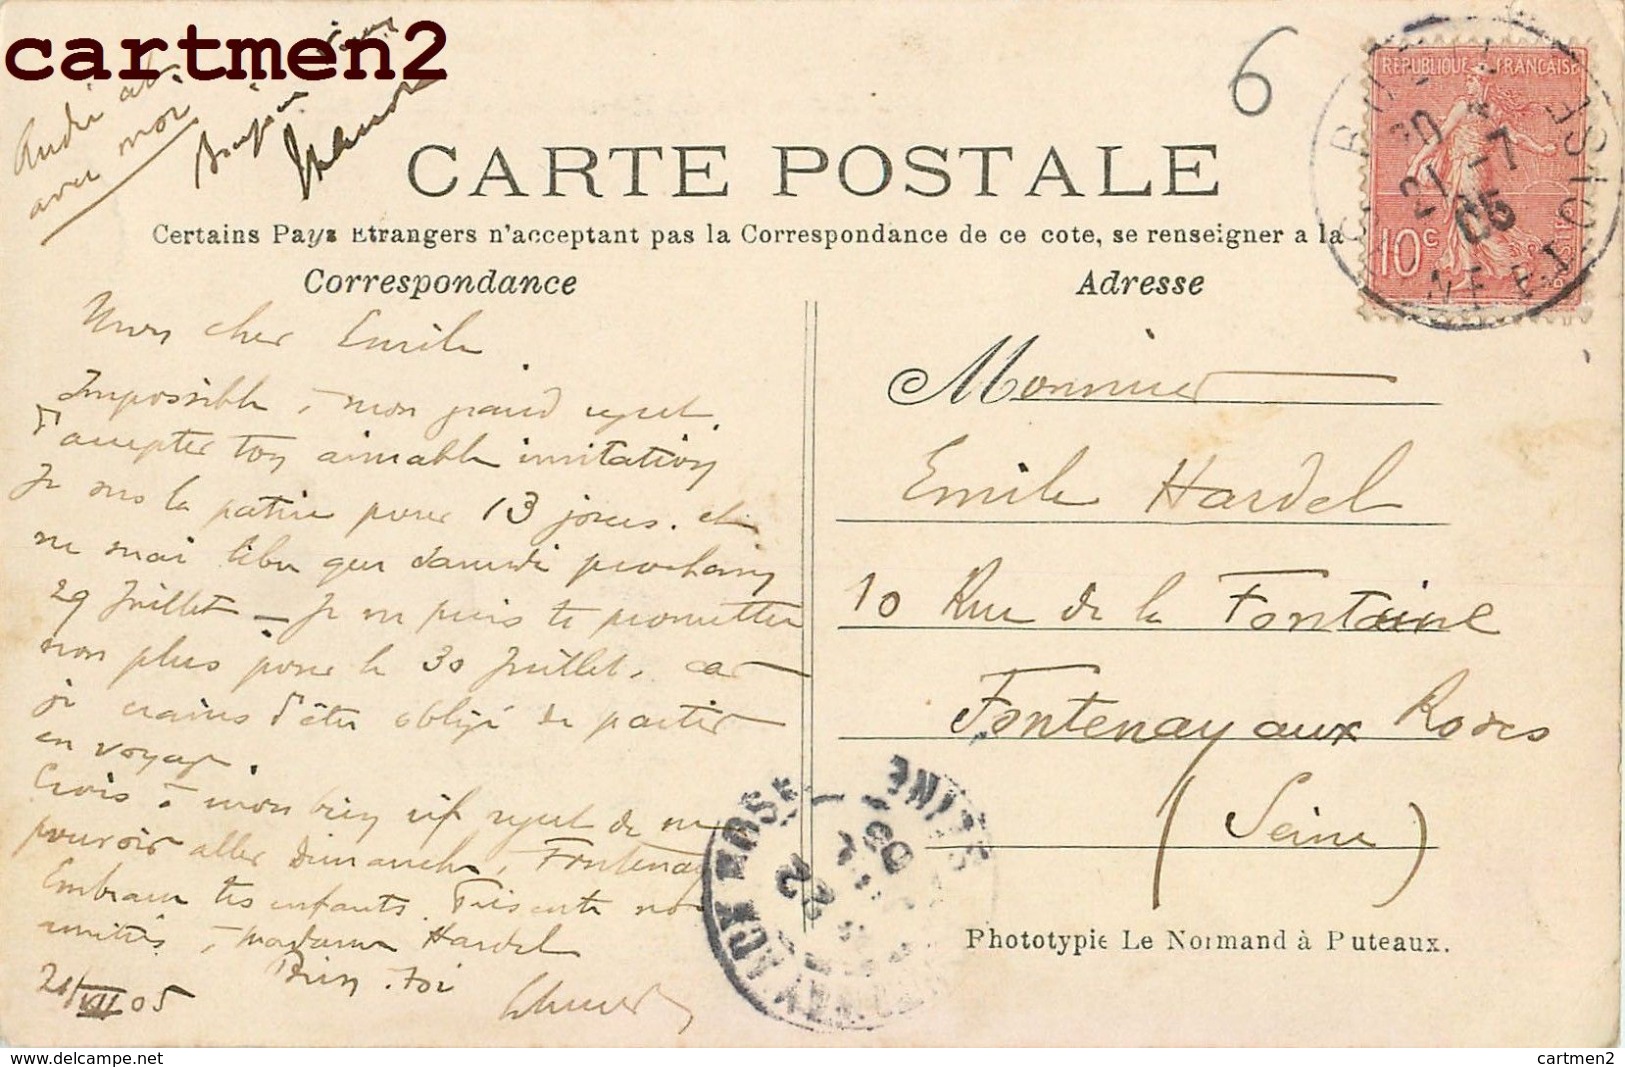 cartmen2
avec moi
6
CARTE POSTALE
Certains Pays Etrangers n'acceptant pas la Correspondance de ce cote, se renseigner a la
Correspondance
Adresse
REPUBLIQUE FRANÇAISE
10 c
21 -7
05
Mon cher Emile
Impossible, à mon grand regret,
d'accepter ton aimable invitation
Je suis la patrie pour 13 jours. et
ne serai libre que samedi prochain
29 Juillet — Je ne puis te promettre
non plus pour le 30 Juillet, car
je crains d'être obligé de partir
en voyage.
Crois à mon bien vif regret de ne
pouvoir aller Dimanche à Fontenay
Embrasse tes enfants. Présente mes
amitiés à Madame Hardel
Bien à toi
21/VII 05
Monsieur
Emile Hardel
10 Rue de la Fontaine
Fontenay aux Roses
(Seine)
FONTENAY AUX ROSES SEINE
22
05
Phototypie Le Normand à Puteaux.
delcampe.net
cartmen2